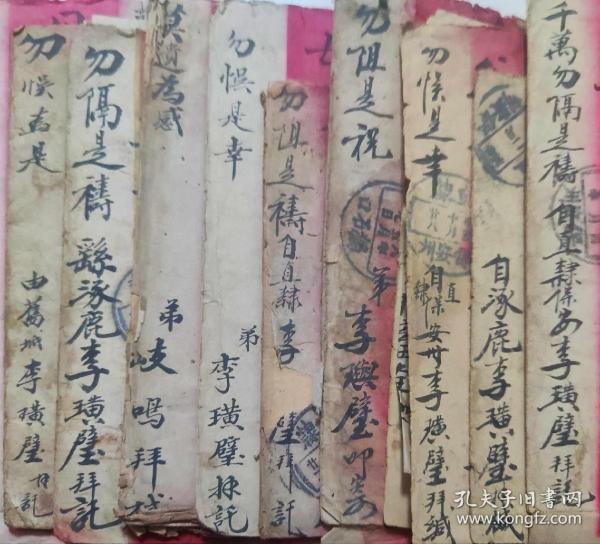 千萬勿隔是禱 自直隸保安李璜璧拜託
自涿鹿李璜璧拜緘
勿悮是幸
自直隸保安州李璜璧拜緘
勿阻是祝
弟李璵璧叩
勿阻是禱自直隸李璧拜託
勿悮是幸
弟李璜璧拜託
莫遺為感
弟岐鳴拜
勿隔是禱 繇涿鹿李璜璧拜託
勿悮為是
由舊城李璜璧拜託
孔夫子旧书网
www.kongfz.com